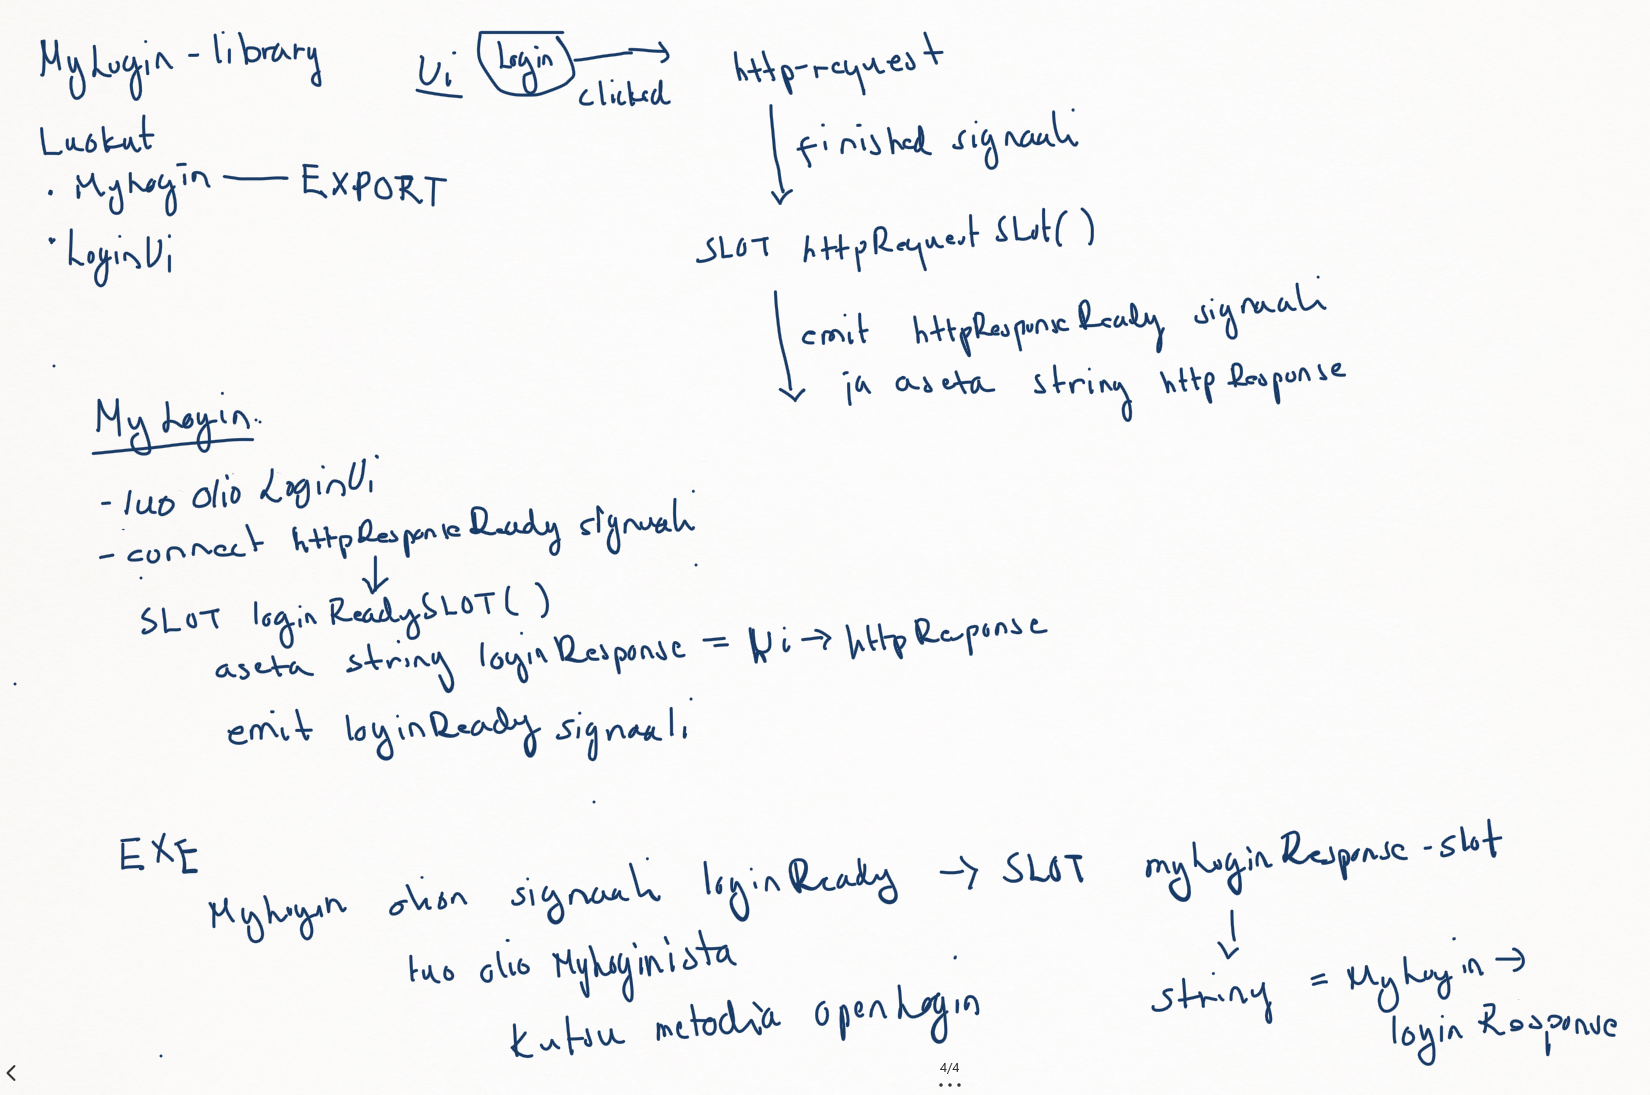 MyLogin - library
Luokat
• MyLogin — EXPORT
• LoginUi
Ui Login → clicked
http-request
finished signaali
SLOT httpRequestSlot()
emit httpResponseReady signaali
ja aseta string httpResponse
MyLogin
- luo olio LoginUi
- connect httpResponseReady signaali
↓
SLOT loginReadySLOT()
aseta string loginResponse = Ui → httpReponse
emit loginReady signaali
EXE
MyLogin olion signaali loginReady → SLOT myLoginResponse-slot
luo olio MyLoginista
kutsu metodia openLogin
↓
string = MyLogin →
loginResponse
4/4